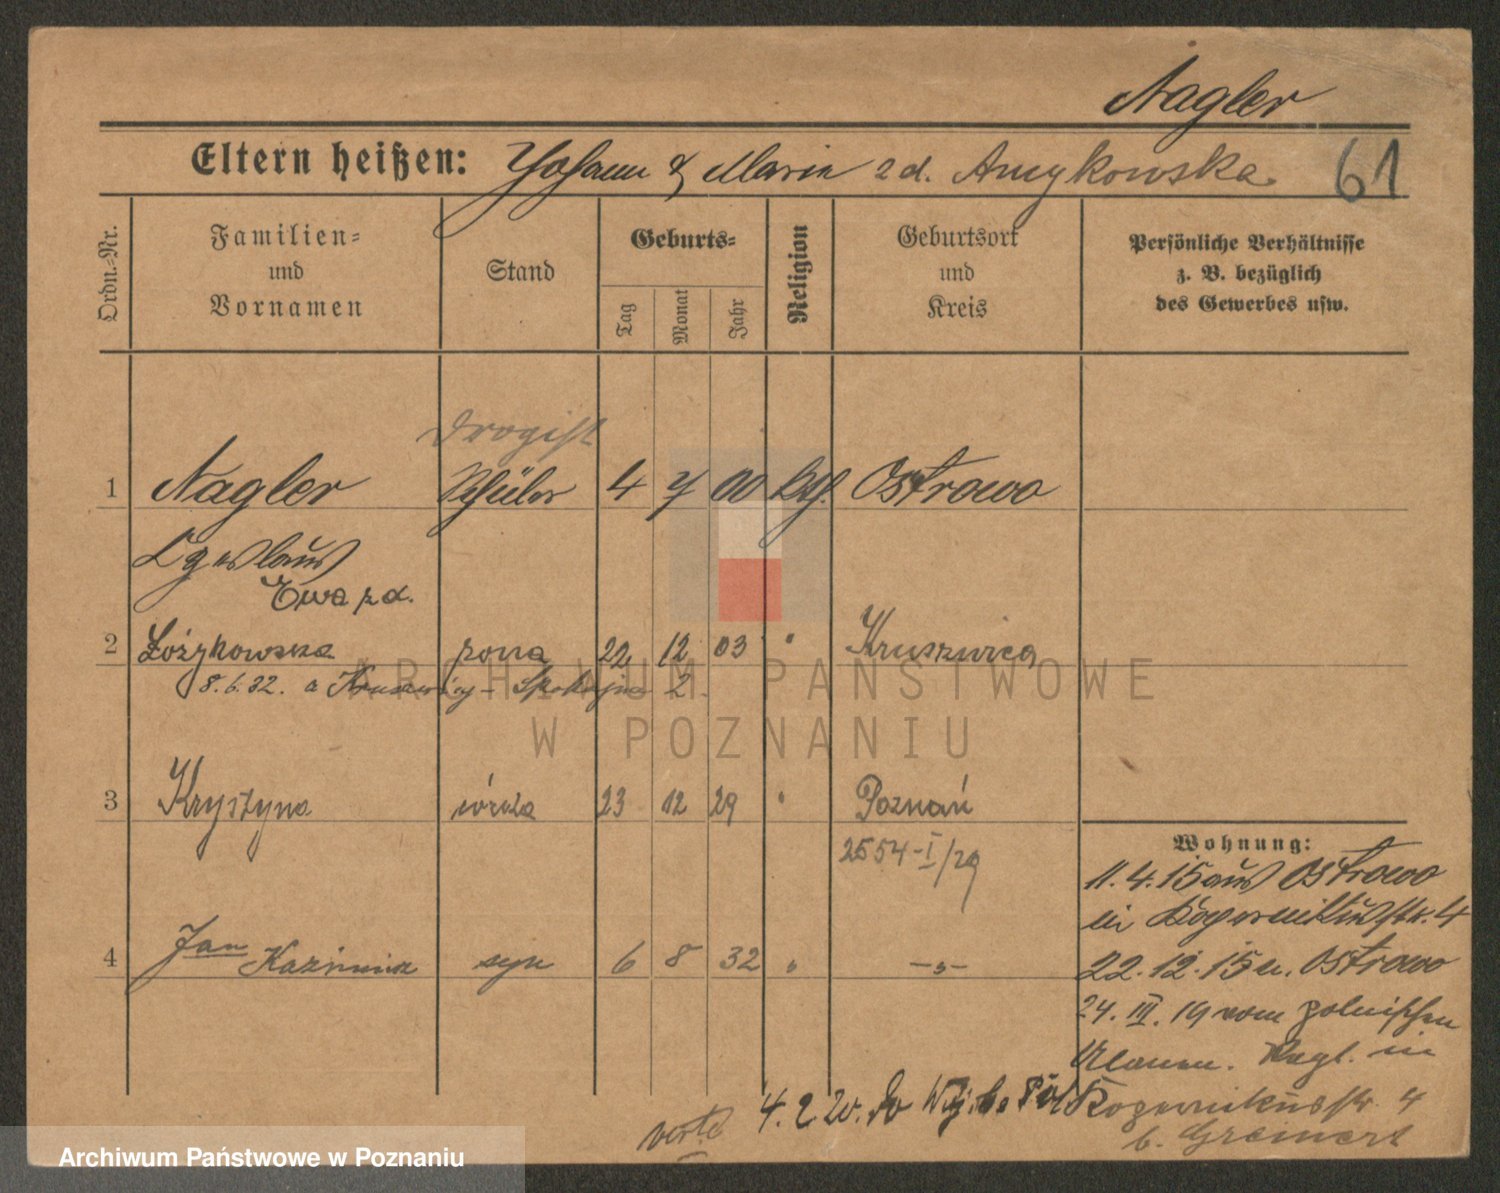 Nagler
Eltern heißen: Johann & Maria zd. Amykowska
61
Ordn.-Nr.
Familien-
und
Vornamen
Stand
Geburts-
Tag
Monat
Jahr
Religion
Geburtsort
und
Kreis
Persönliche Verhältnisse
z. B. bezüglich
des Gewerbes usw.
Drogist
1 Nagler Schüler 4 7 00 Ostrowo
Ewa z d.
2 Łożykowska żona 22 12 03 " Kruszwica
8.6.32. a Spokojna 2
3 Krystyna córka 23 12 29 " Poznań
2554-I/29
4 Jan Kazimierz syn 6 8 32 " -"-
Wohnung:
11.4.15 aus Ostrowo
in Kopernikusstr. 4
22.12.15 n. Ostrowo
24. III. 19 vom polnischen
Ulanen. Regt. in
4.2.20. do Kopernikusstr. 4
b.
verte
ARCHIWUM PAŃSTWOWE
W POZNANIU
Archiwum Państwowe w Poznaniu